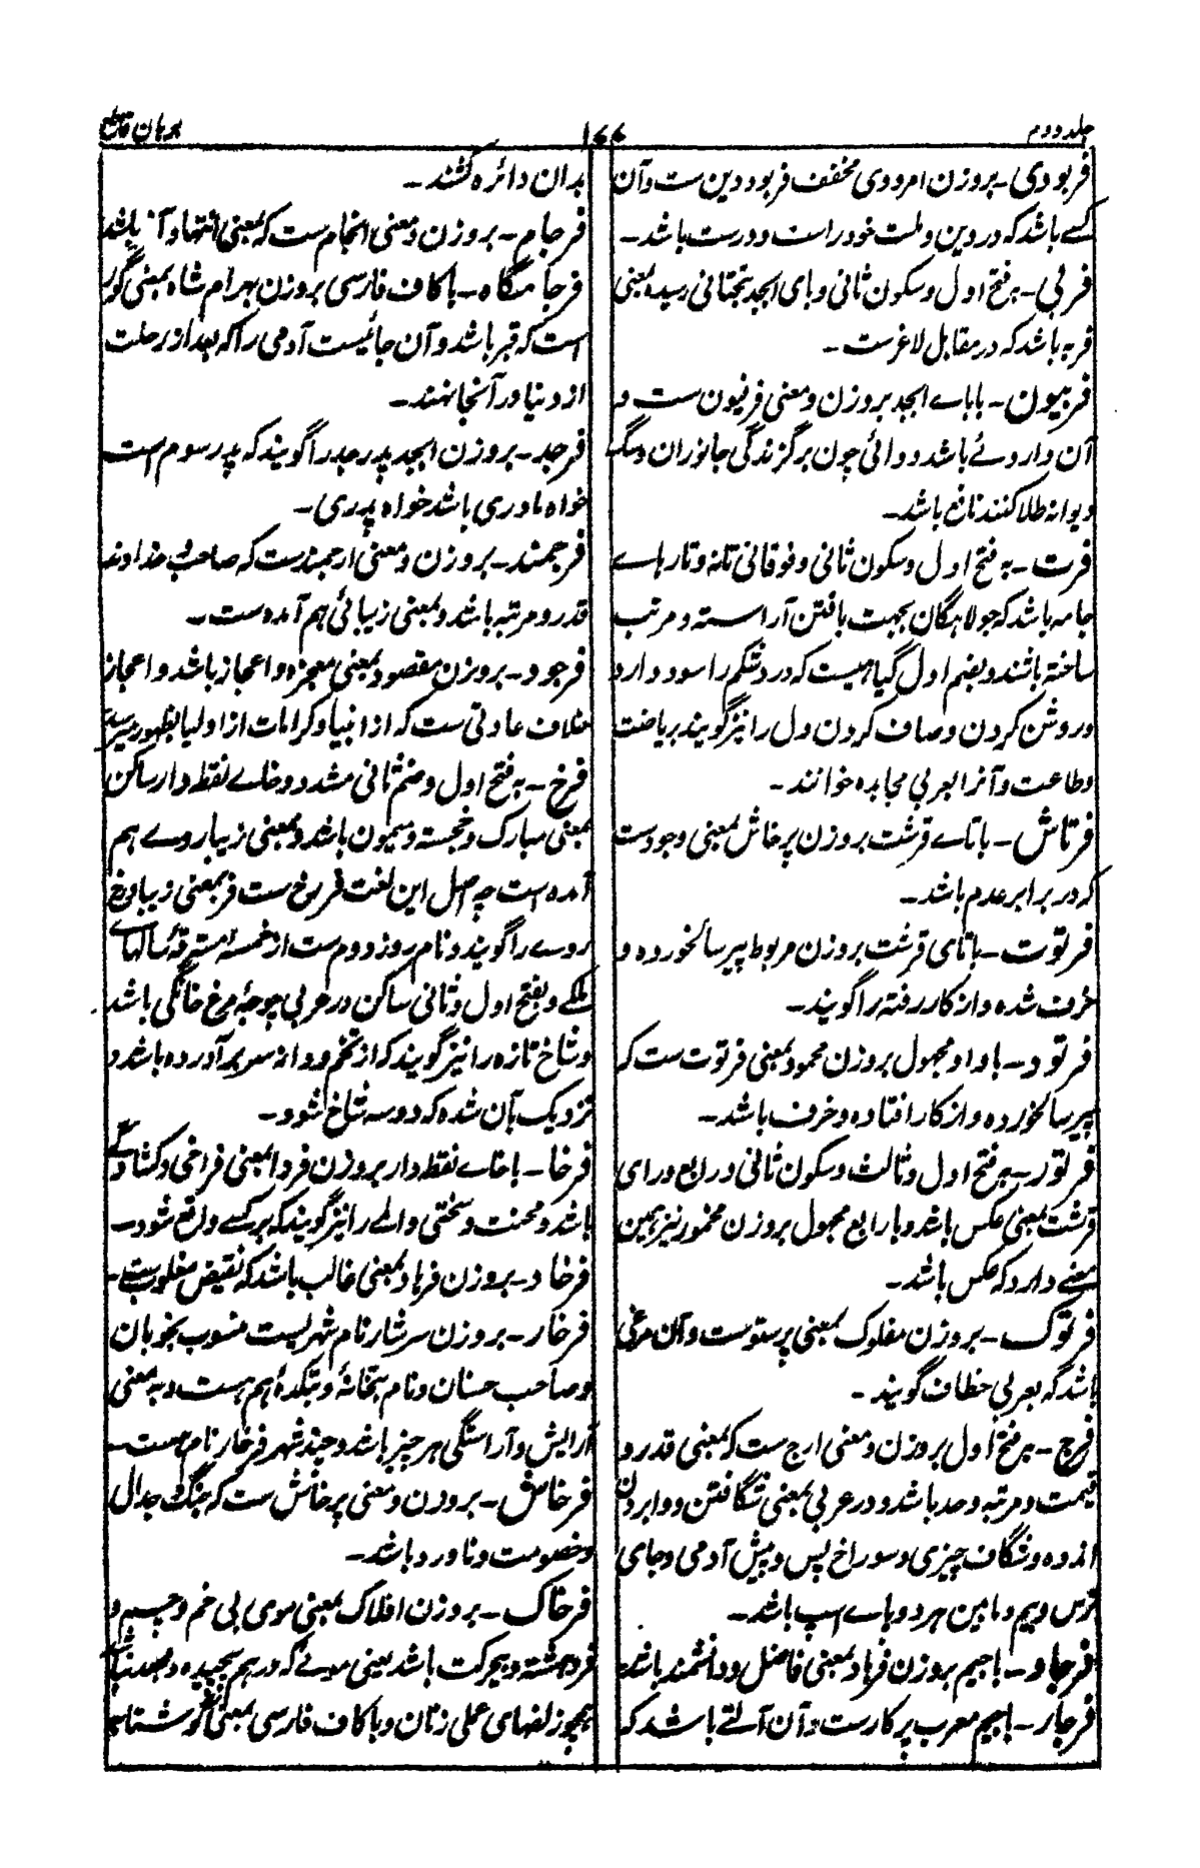 جلد دوم
۱۶۶
برهان قاطع
فربودی۔ بروزن امرودی مخفف فربود دین ست و آن
کسے باشد که در دین و ملت خود راست و درست باشد۔
فربی۔ بہ فتح اول و سکون ثانی و بای ابجد بتحتانی رسیده بمعنی
فربه باشد که در مقابل لاغرست۔
فربیون۔ با باے ابجد بروزن و معنی فرفیون ست و
آن داروئے باشد دوائی چون بر گزندگی جانوران و سگ
دیوانه طلا کنند نافع باشد۔
فرت۔ بہ فتح اول و سکون ثانی و فوقانی تانه و تار ہاے
جامه باشد که جولاہگان بجہت بافتن آراسته و مرتب
ساخته باشند و بضم اول گیاہیست که درد شکم را سود دارد
و روشن کردن و صاف کردن دل را نیز گویند بریاضت
و طاعت و آنرا بعربی مجاہده خوانند۔
فرتاش۔ با تاے قرشت بروزن پرخاش بمعنی وجودست
که در برابر عدم باشد۔
فرتوت۔ با تای قرشت بروزن مربوط پیر سالخورده و
خرف شده و از کار رفته را گویند۔
فرتود۔ با واو مجہول بروزن محمود بمعنی فرتوت ست که
پیر سالخورده و از کار افتاده و خرف باشد۔
فرتور۔ بہ فتح اول و ثالث و سکون ثانی و رابع و رای
قرشت بمعنی عکس باشد و با رابع مجہول بروزن مخمور نیز ہمین
معنے دارد که عکس باشد۔
فرتوک۔ بروزن مفلوک بمعنی پرستوست و آن مرغی
باشد که بعربی خطاف گویند۔
فرج۔ بہ فتح اول بروزن و معنی ارج ست که بمعنی قدر و
قیمت و مرتبه و حد باشد و در عربی بمعنی شگافتن و وا بردن
اندوه و شگاف چیزی و سوراخ پس و پیش آدمی و جای
ترس و بیم و مابین ہر دو پاے اسپ باشد۔
فرجاد۔ با جیم بروزن فرہاد بمعنی فاضل و دانشمند باشد
فرجار۔ با جیم معرب پرکارست و آن آلتے باشد که
بدان دائره کشند۔
فرجام۔ بروزن و معنی انجام ست که بمعنی انتہا و آخر باشد
فرجامگاه۔ با کاف فارسی بروزن بہرام شاه بمعنی گور
است که قبر باشد و آن جائیست آدمی را که بعد از رحلت
از دنیا در آنجا نہند۔
فرجد۔ بروزن ابجد پدر جد را گویند که پدر سوم است
خواه مادری باشد خواه پدری۔
فرجمند۔ بروزن و معنی ارجمندست که صاحب و خداوند
قدر و مرتبه باشد و بمعنی زیبائی ہم آمده ست۔
فرجود۔ بروزن مقصود بمعنی معجزه و اعجاز باشد و اعجاز
خلاف عادتی ست که از انبیا و کرامات از اولیا بظہور میرسد
فرخ۔ بہ فتح اول و ضم ثانی مشدد و خاے نقطه دار ساکن
بمعنی مبارک و خجسته و میمون باشد و بمعنی زیبا روے ہم
آمده است چه اصل این لغت فر رخ ست فر بمعنی زیبا و رخ
روے را گویند و نام روز دوم ست از خمسه مسترقه سالہاے
ملکے و بفتح اول و ثانی ساکن در عربی جوجۀ مرغ خانگی باشد
و شاخ تازه را نیز گویند که از تخم رود از سر بر آورده باشد و
نزدیک بآن شده که دو سه شاخ شود۔
فرخا۔ با خاے نقطه دار بروزن فردا بمعنی فراخی و کشادگے
باشد و محنت و سختی و المے را نیز گویند که بر کسے واقع شود۔
فرخاد۔ بروزن فرہاد بمعنی غالب باشد که نقیض مغلوب ست۔
فرخار۔ بروزن سرشار نام شہریست منسوب بخوبان
و صاحب حسنان و نام بتخانۀ و بتکدۀ ہم ہست و بہ معنی
آرایش و آراستگی ہر چیز باشد و چند شہر فرخار نام ہست۔
فرخاش۔ بروزن و معنی پرخاش ست که جنگ و جدال
و خصومت و ناورد باشد۔
فرخاک۔ بروزن افلاک بمعنی موی بی خم و
فروہشته و بیحرکت باشد یعنی موئے که درہم پیچیده و
ہمچو زلفہای عملی زنان و با کاف فارسی بمعنی گوشتابه